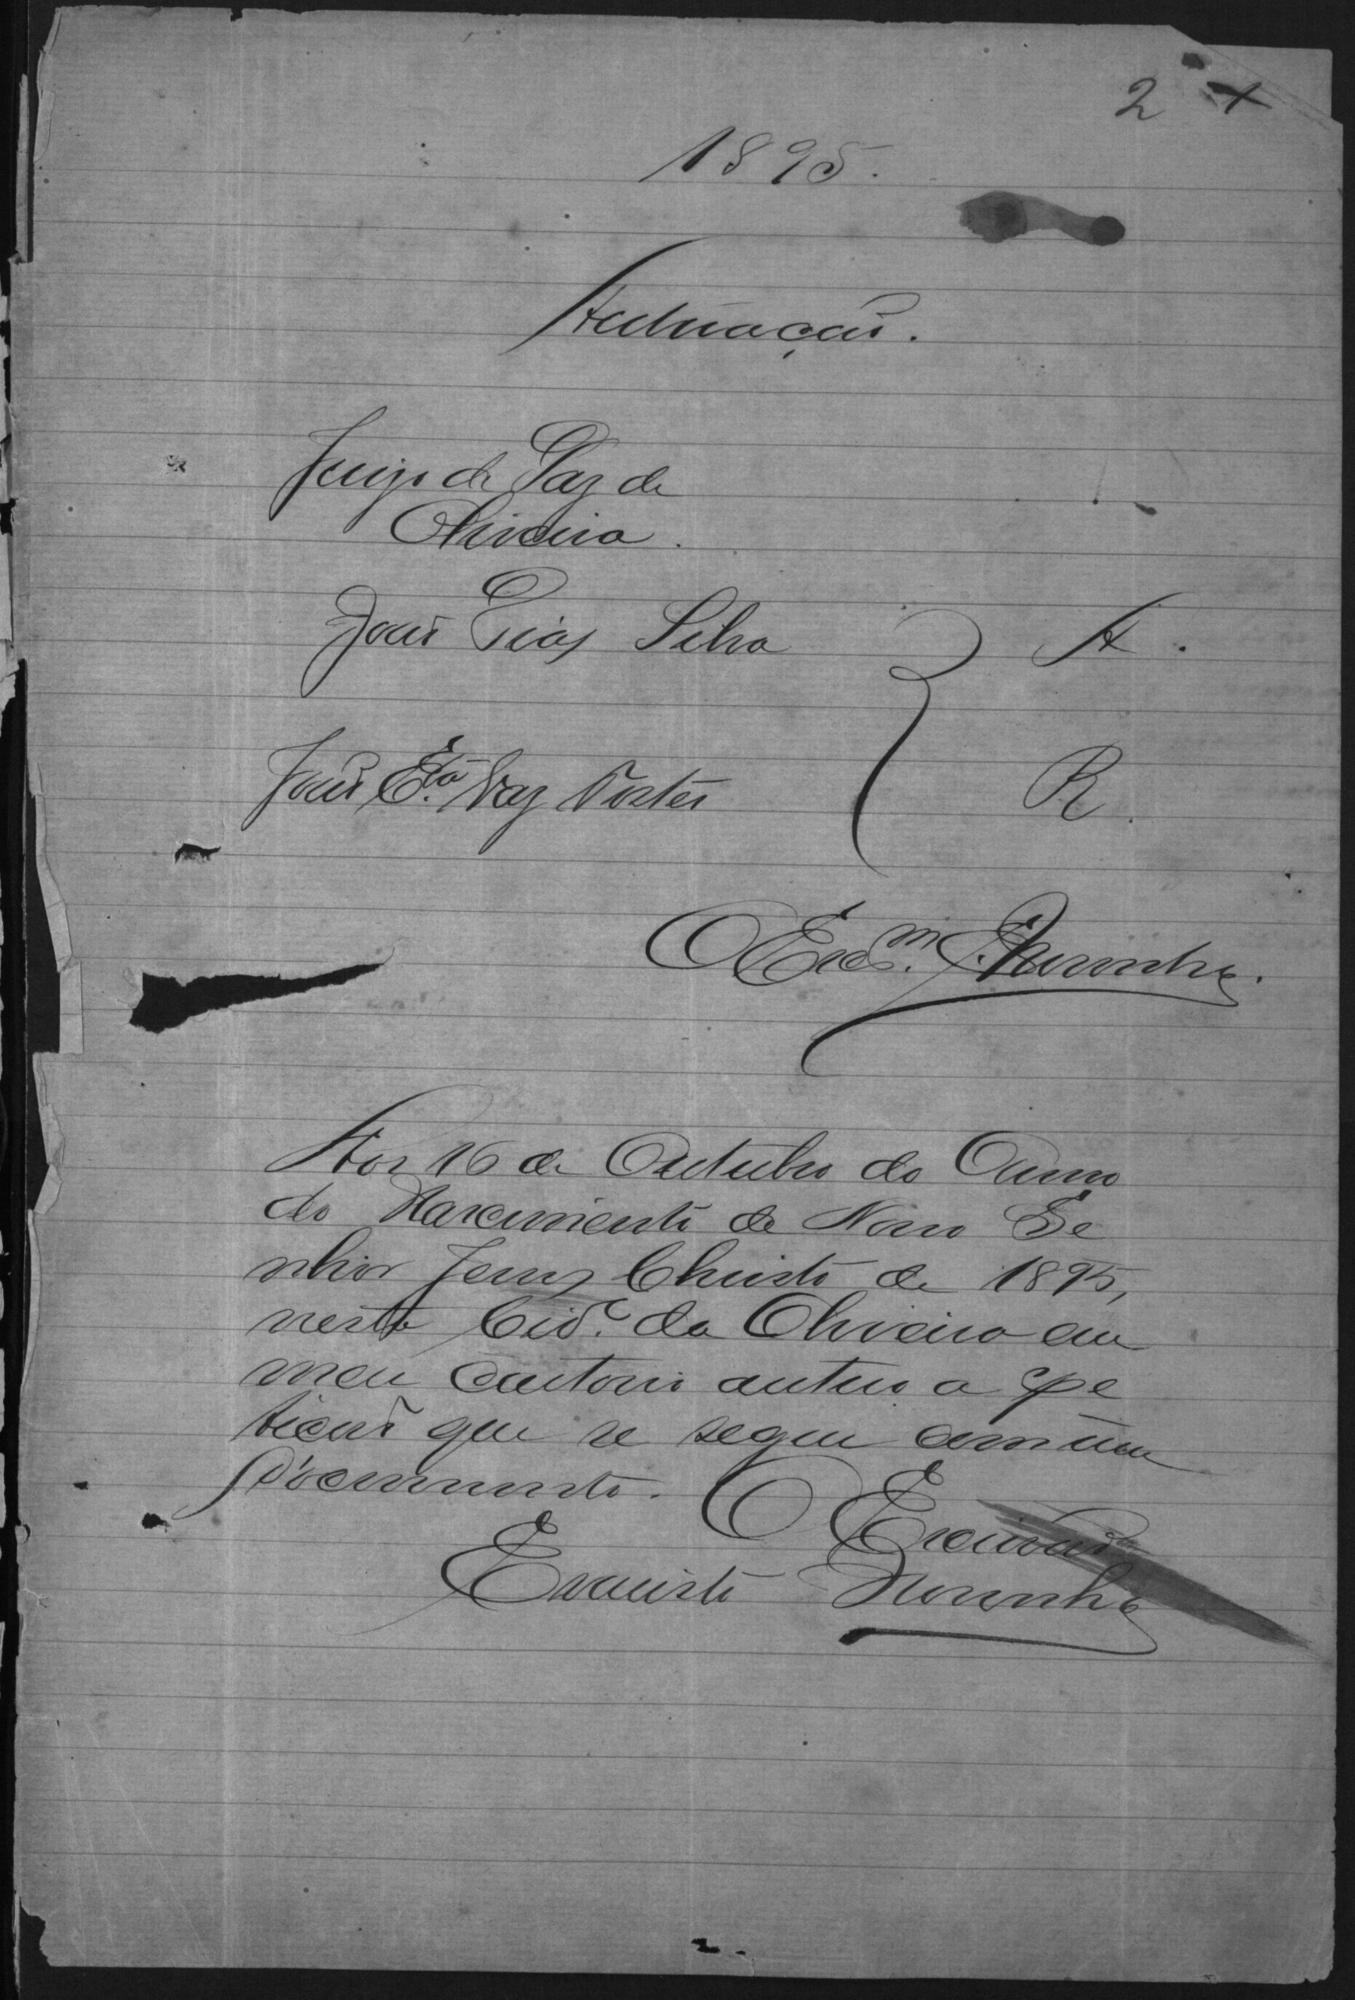 2
1895.
Autuação.
Juizo de Paz de
Oliveira.
João Dias Silva A.
João Vaz R.
O Escm. E. Noronha.
Aos 16 de Outubro do Anno
do Nascimento de Nosso Se
nhor Jesus Christo de 1895,
nesta Cide. da Oliveira em
meu cartorio autuo a pe
tição que se segue com um
documento. O Escrivão
Evaristo Noronha